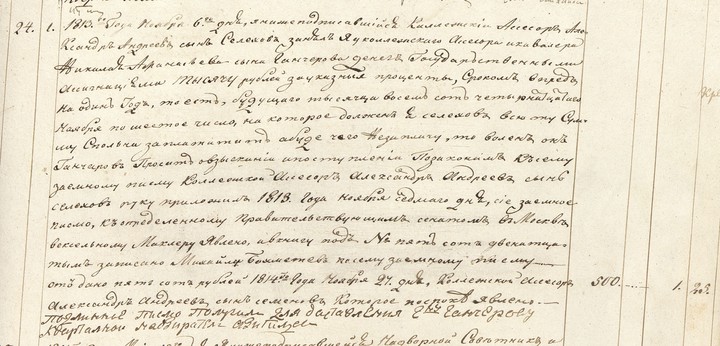 24. 1. 1813го Года Ноября 6го дня, я нижеподписавшийся Коллежский Асесоръ Але
ксандръ Андреевъ сынъ Селеховъ занялъ я у коллежскаго Асесора и кавалера
Николая Афанасьева сына Ганчерова денегъ Государственными
Асигнацыями тысячу рублей за указныя проценты, срокомъ впредь
на одинъ годъ, то есть, будущаго тысяча восемь сотъ четырнатцатаго
Ноября по шестое число, на которое долженъ я селеховъ всю ту сум
му сполна заплатить а буде чего незаплачу, то воленъ онъ
Ганчаровъ просить о взыскании и поступлении по законамъ къ сему
заемному писму Коллежской Асесоръ Александръ Андреевъ сынъ
селеховъ руку приложилъ 1813. Года ноября седмаго дня, сие заемное
писмо, къ определенному Правительствующимъ сенатомъ в Москвѣ
вексельному Маклеру явлено, и в книгу подъ № пять сотъ двенатца
тымъ записано Михайлъ по сему заемному писму
отдано пять сотъ рублей 1814го Года Ноября 27. дня, Коллежской Асесоръ 500. 1.
Александръ Андреевъ сынъ семеновъ Которое посрокѣ явлено.
Подлинное писмо Получилъ для доставления Гну Ганчерову
квартальной надзиратель